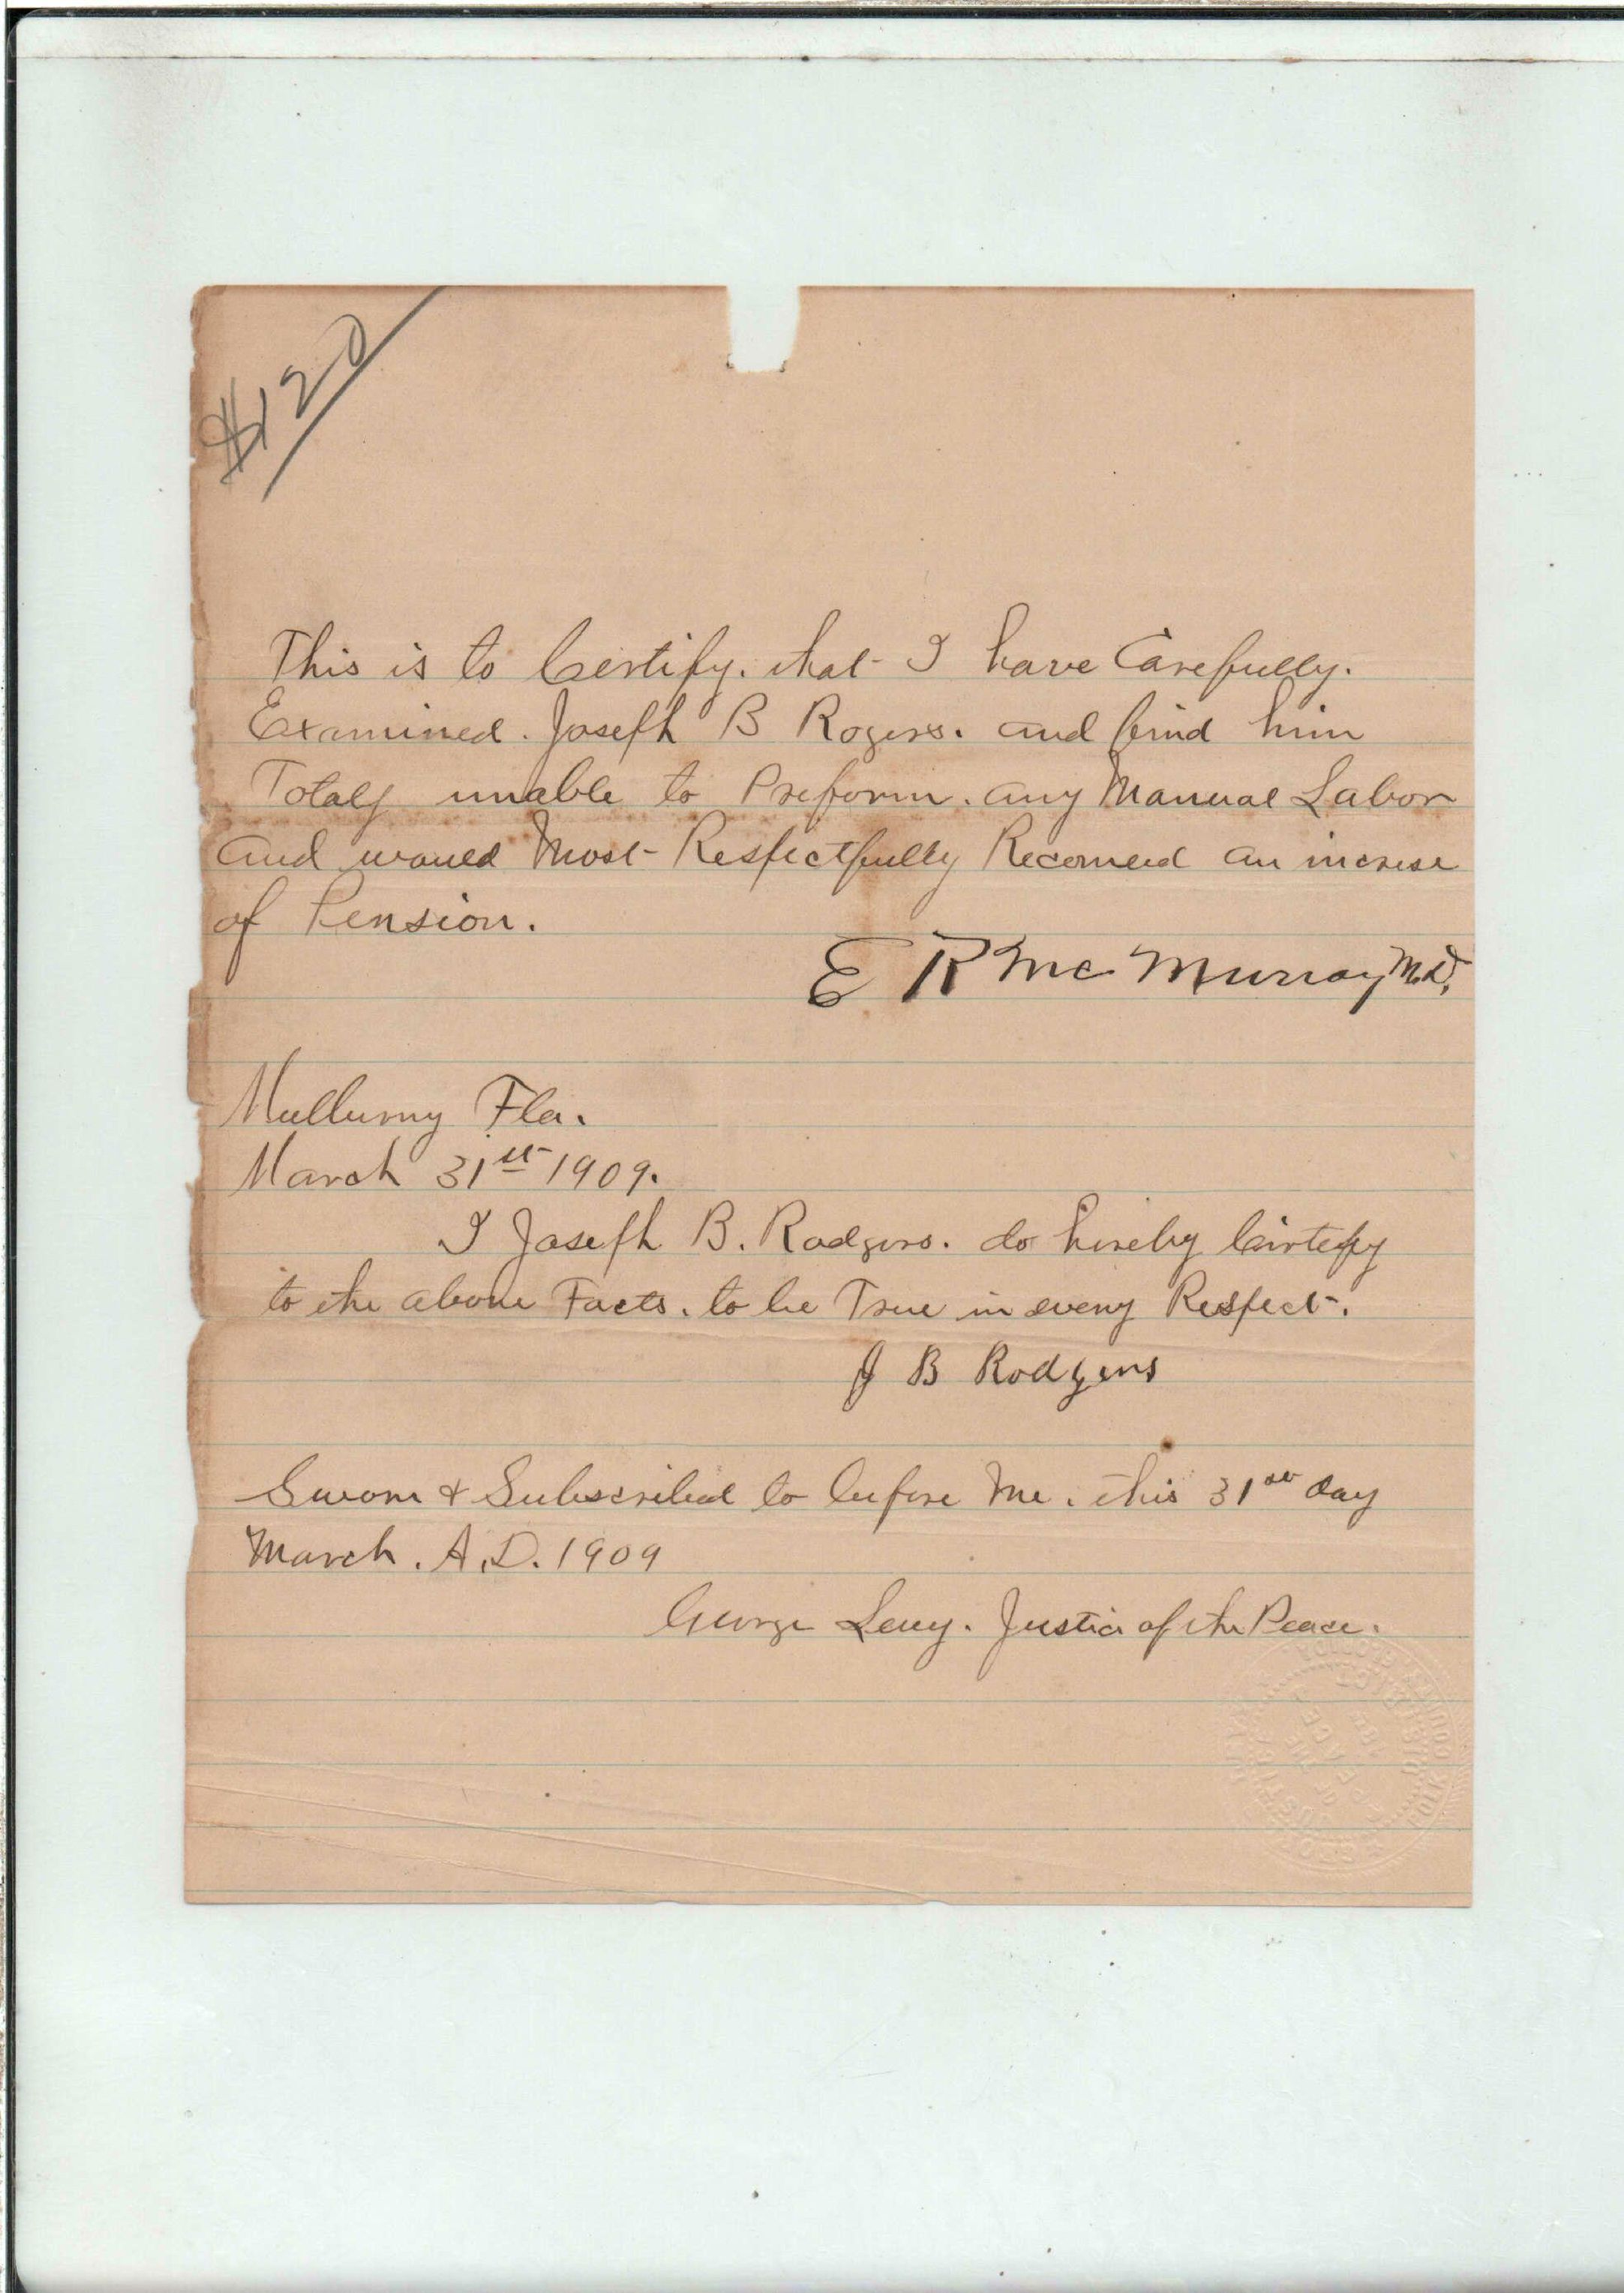 $120
This is to Certify. that I have Carefully.
Examined. Joseph B Rogers. and find him
Totaly unable to Preform. any Manual Labor
and would Most Respectfully Recomend an increse
of Pension.
E R McMurray M.D.
Mulburny Fla.
March 31st 1909.
I Joseph B. Rodgers. do hereby Certefy
to the above Facts. to be True in every Respect.
J B Rodgers
Sworn & Subscribed to before Me. this 31st day
March. A.D. 1909
George Levy. Justice of the Peace.